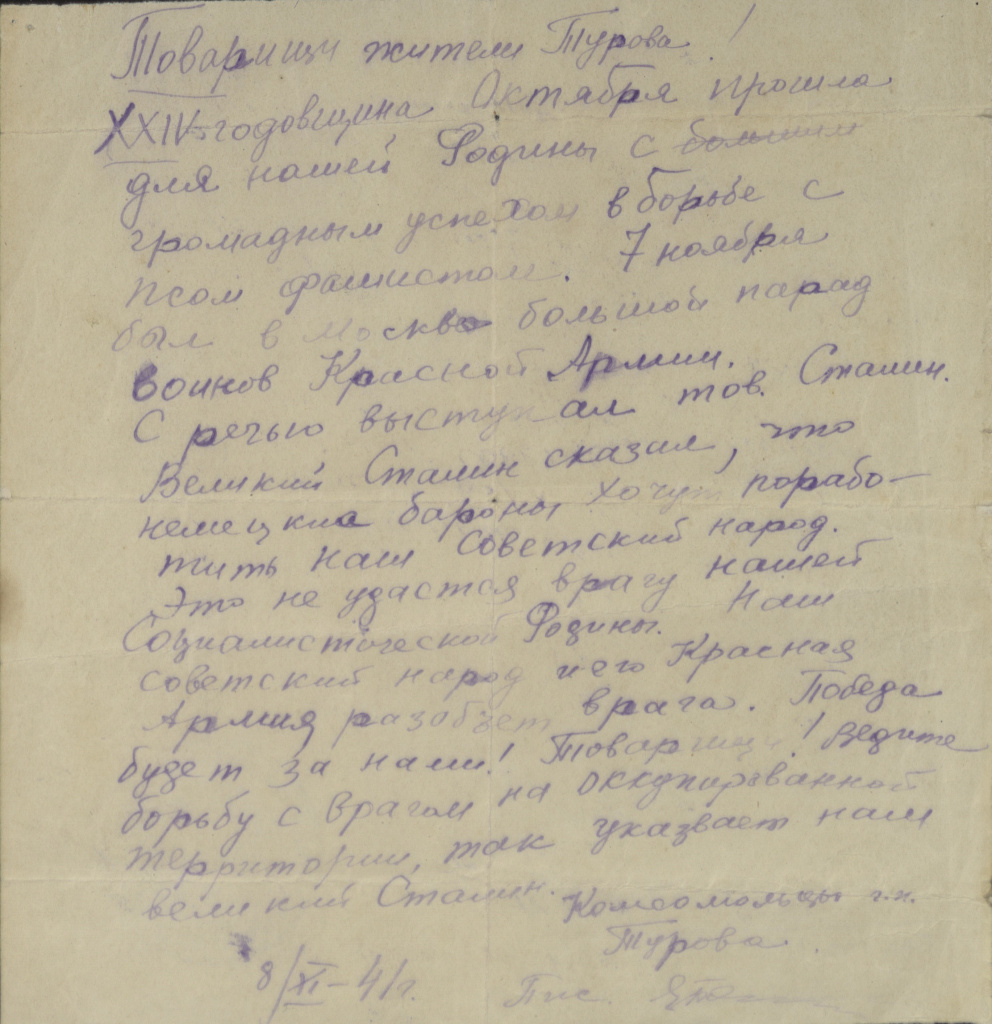 Товарищи жители Турова!
XXIV-годовщина Октября прошла
для нашей Родины с большим
громадным успехом в борьбе с
псом фашистом. 7 ноября
был в Москве большой парад
воинов Красной Армии.
С речью выступал тов. Сталин.
Великий Сталин сказал, что
немецкие бароны хочут порабо-
тить наш советский народ.
Это не удастся врагу нашей
Социалистической Родины. Наш
советский народ и его Красная
Армия разобьет врага. Победа
будет за нами! Товарищи! Ведите
борьбу с врагом на оккупированной
территории, так указвает нам
великий Сталин.
Комсомольцы г.п.
Турова.
8/XI-41г.
Пис.